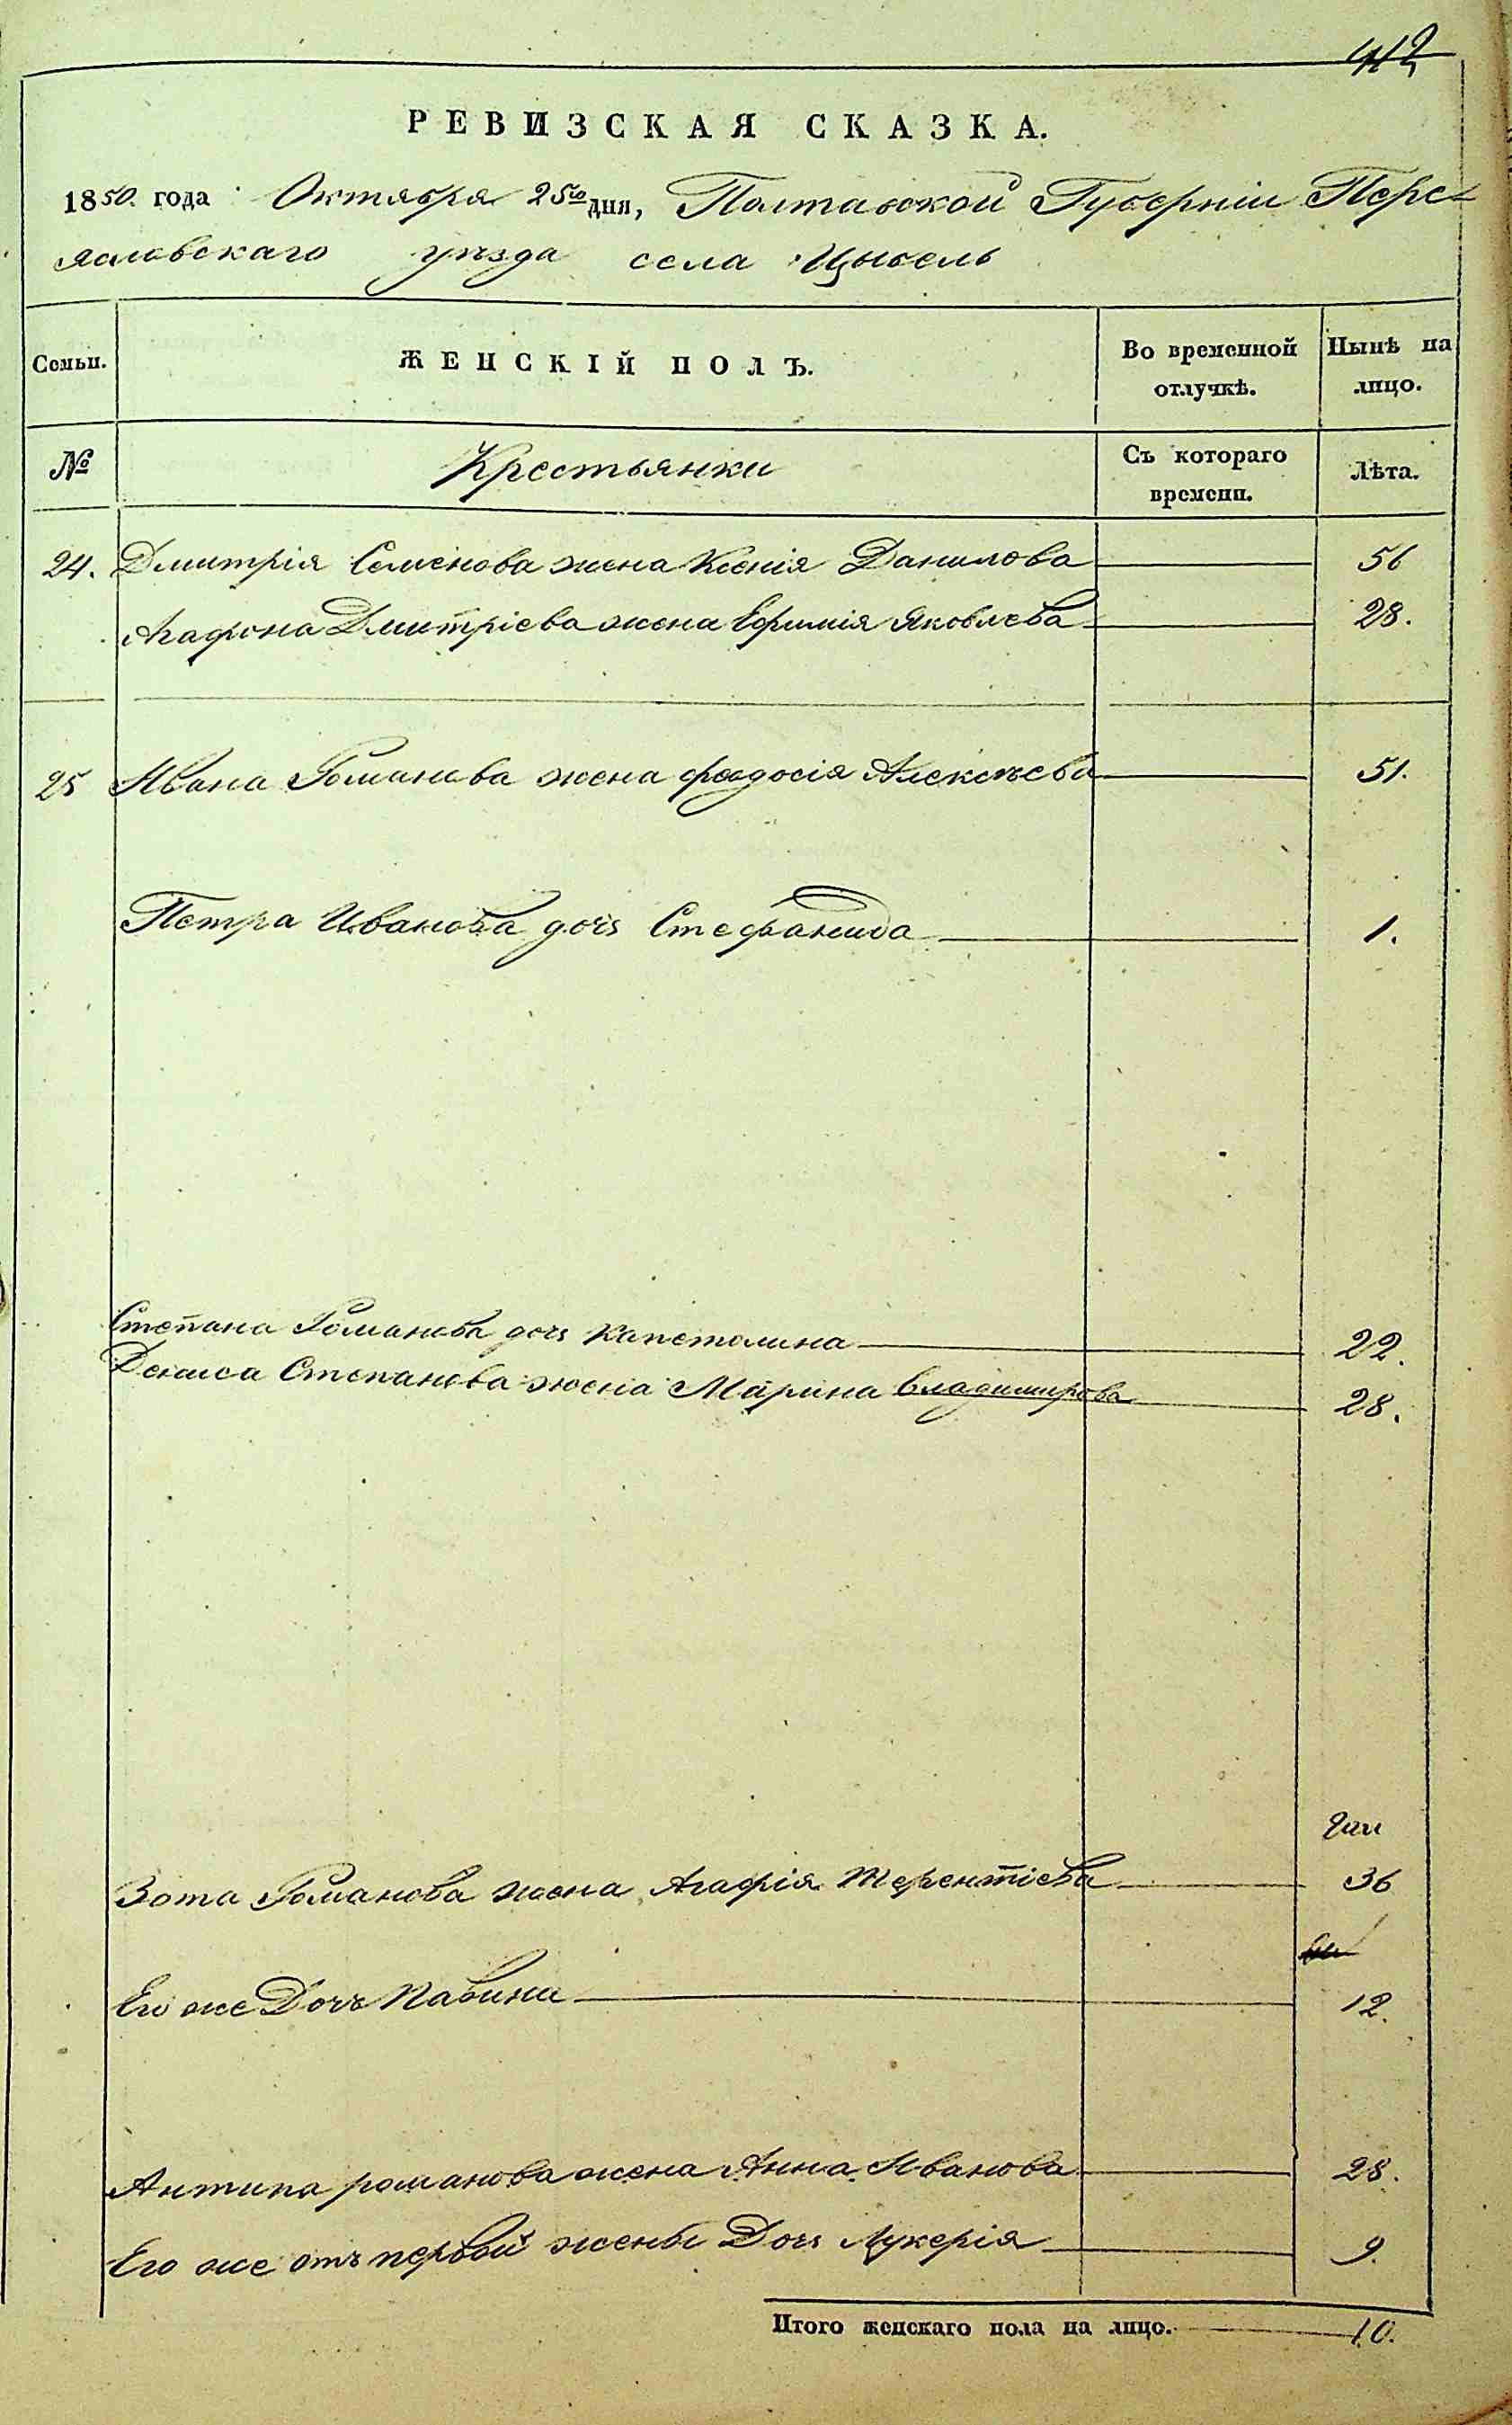 412
РЕВИЗСКАЯ СКАЗКА.
1850. года Октября 25го дня, Полтавской Губерніи Пере-
яславскаго уѣзда села Цыбель
Семьи. ЖЕНСКІЙ ПОЛЪ. Во временной отлучкѣ. Нынѣ на лицо.
№ Крестьянки Съ котораго времени. Лѣта.
24. Дмитрія Семенова жена Ксенія Данилова 56
Агафона Дмитріева жена Ефимія Яковлева 28.
25 Ивана Романова жена Феодосія Алексѣева 51.
Петра Иванова дочь Стефанида 1.
Степана Романова дочь Капетолина 22.
Дениса Степанова жена Марина Владимирова 28.
Зота Романова жена Агафія Терентіева 36
Его же Дочь Павина 12.
Антипа романова жена Анна Иванова 28.
Его же отъ первой жены Дочь Лукерія 9.
Итого женскаго пола на лицо. 10.